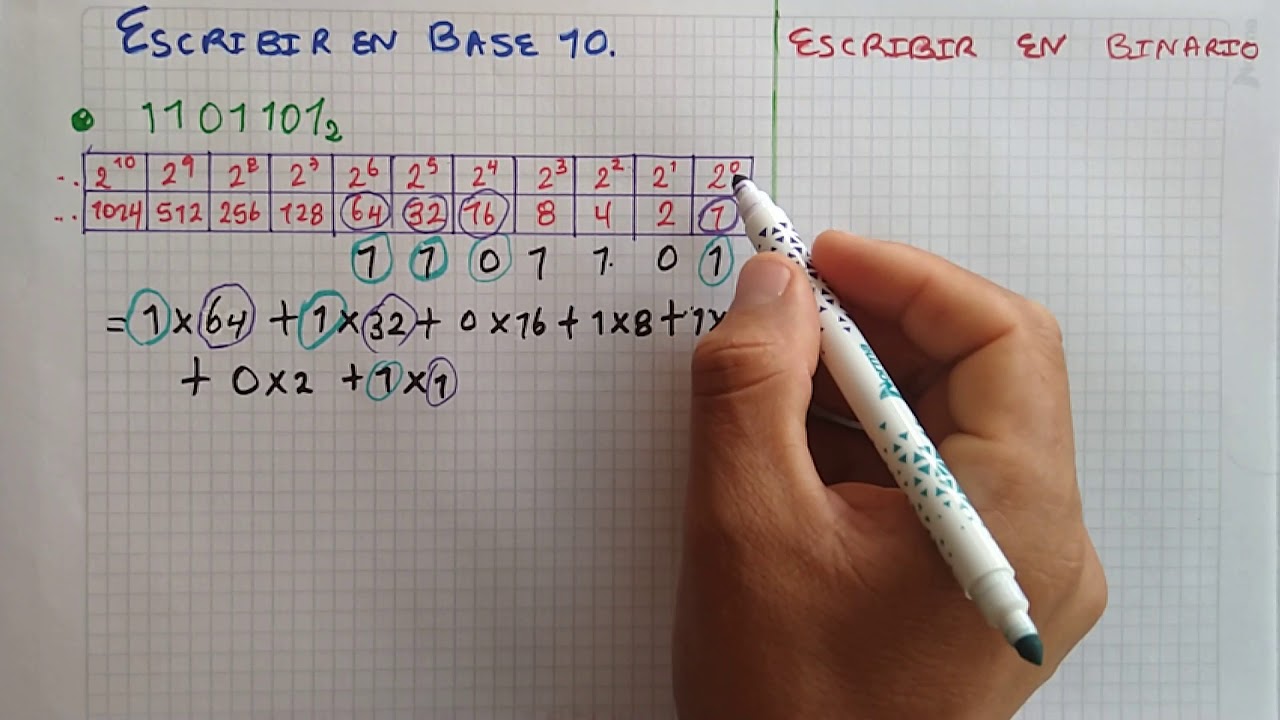 ESCRIBIR EN BASE 10.
ESCRIBIR EN BINARIO
• 1101101₂
.. 2¹⁰ 2⁹ 2⁸ 2⁷ 2⁶ 2⁵ 2⁴ 2³ 2² 2¹ 2⁰
.. 1024 512 256 128 64 32 16 8 4 2 1
1 1 0 1 1 0 1
= 1 x 64 + 1 x 32 + 0 x 16 + 1 x 8 + 1 x
+ 0 x 2 + 1 x 1